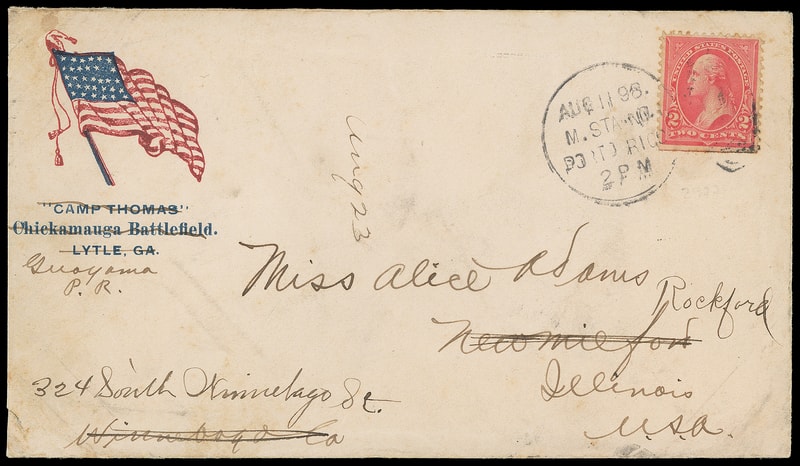 "CAMP THOMAS"
Chickamauga Battlefield.
LYTLE, GA.
Guayama
P. R.
Aug 23
AUG 11 98.
M. STA. NO.
PORTO RICO
2 PM
UNITED STATES POSTAGE
2 2
TWO CENTS
Miss Alice Adams
Rockford
New Milford
Illinois
U.S.A.
324 South Winnebago St.
Winnebago Co